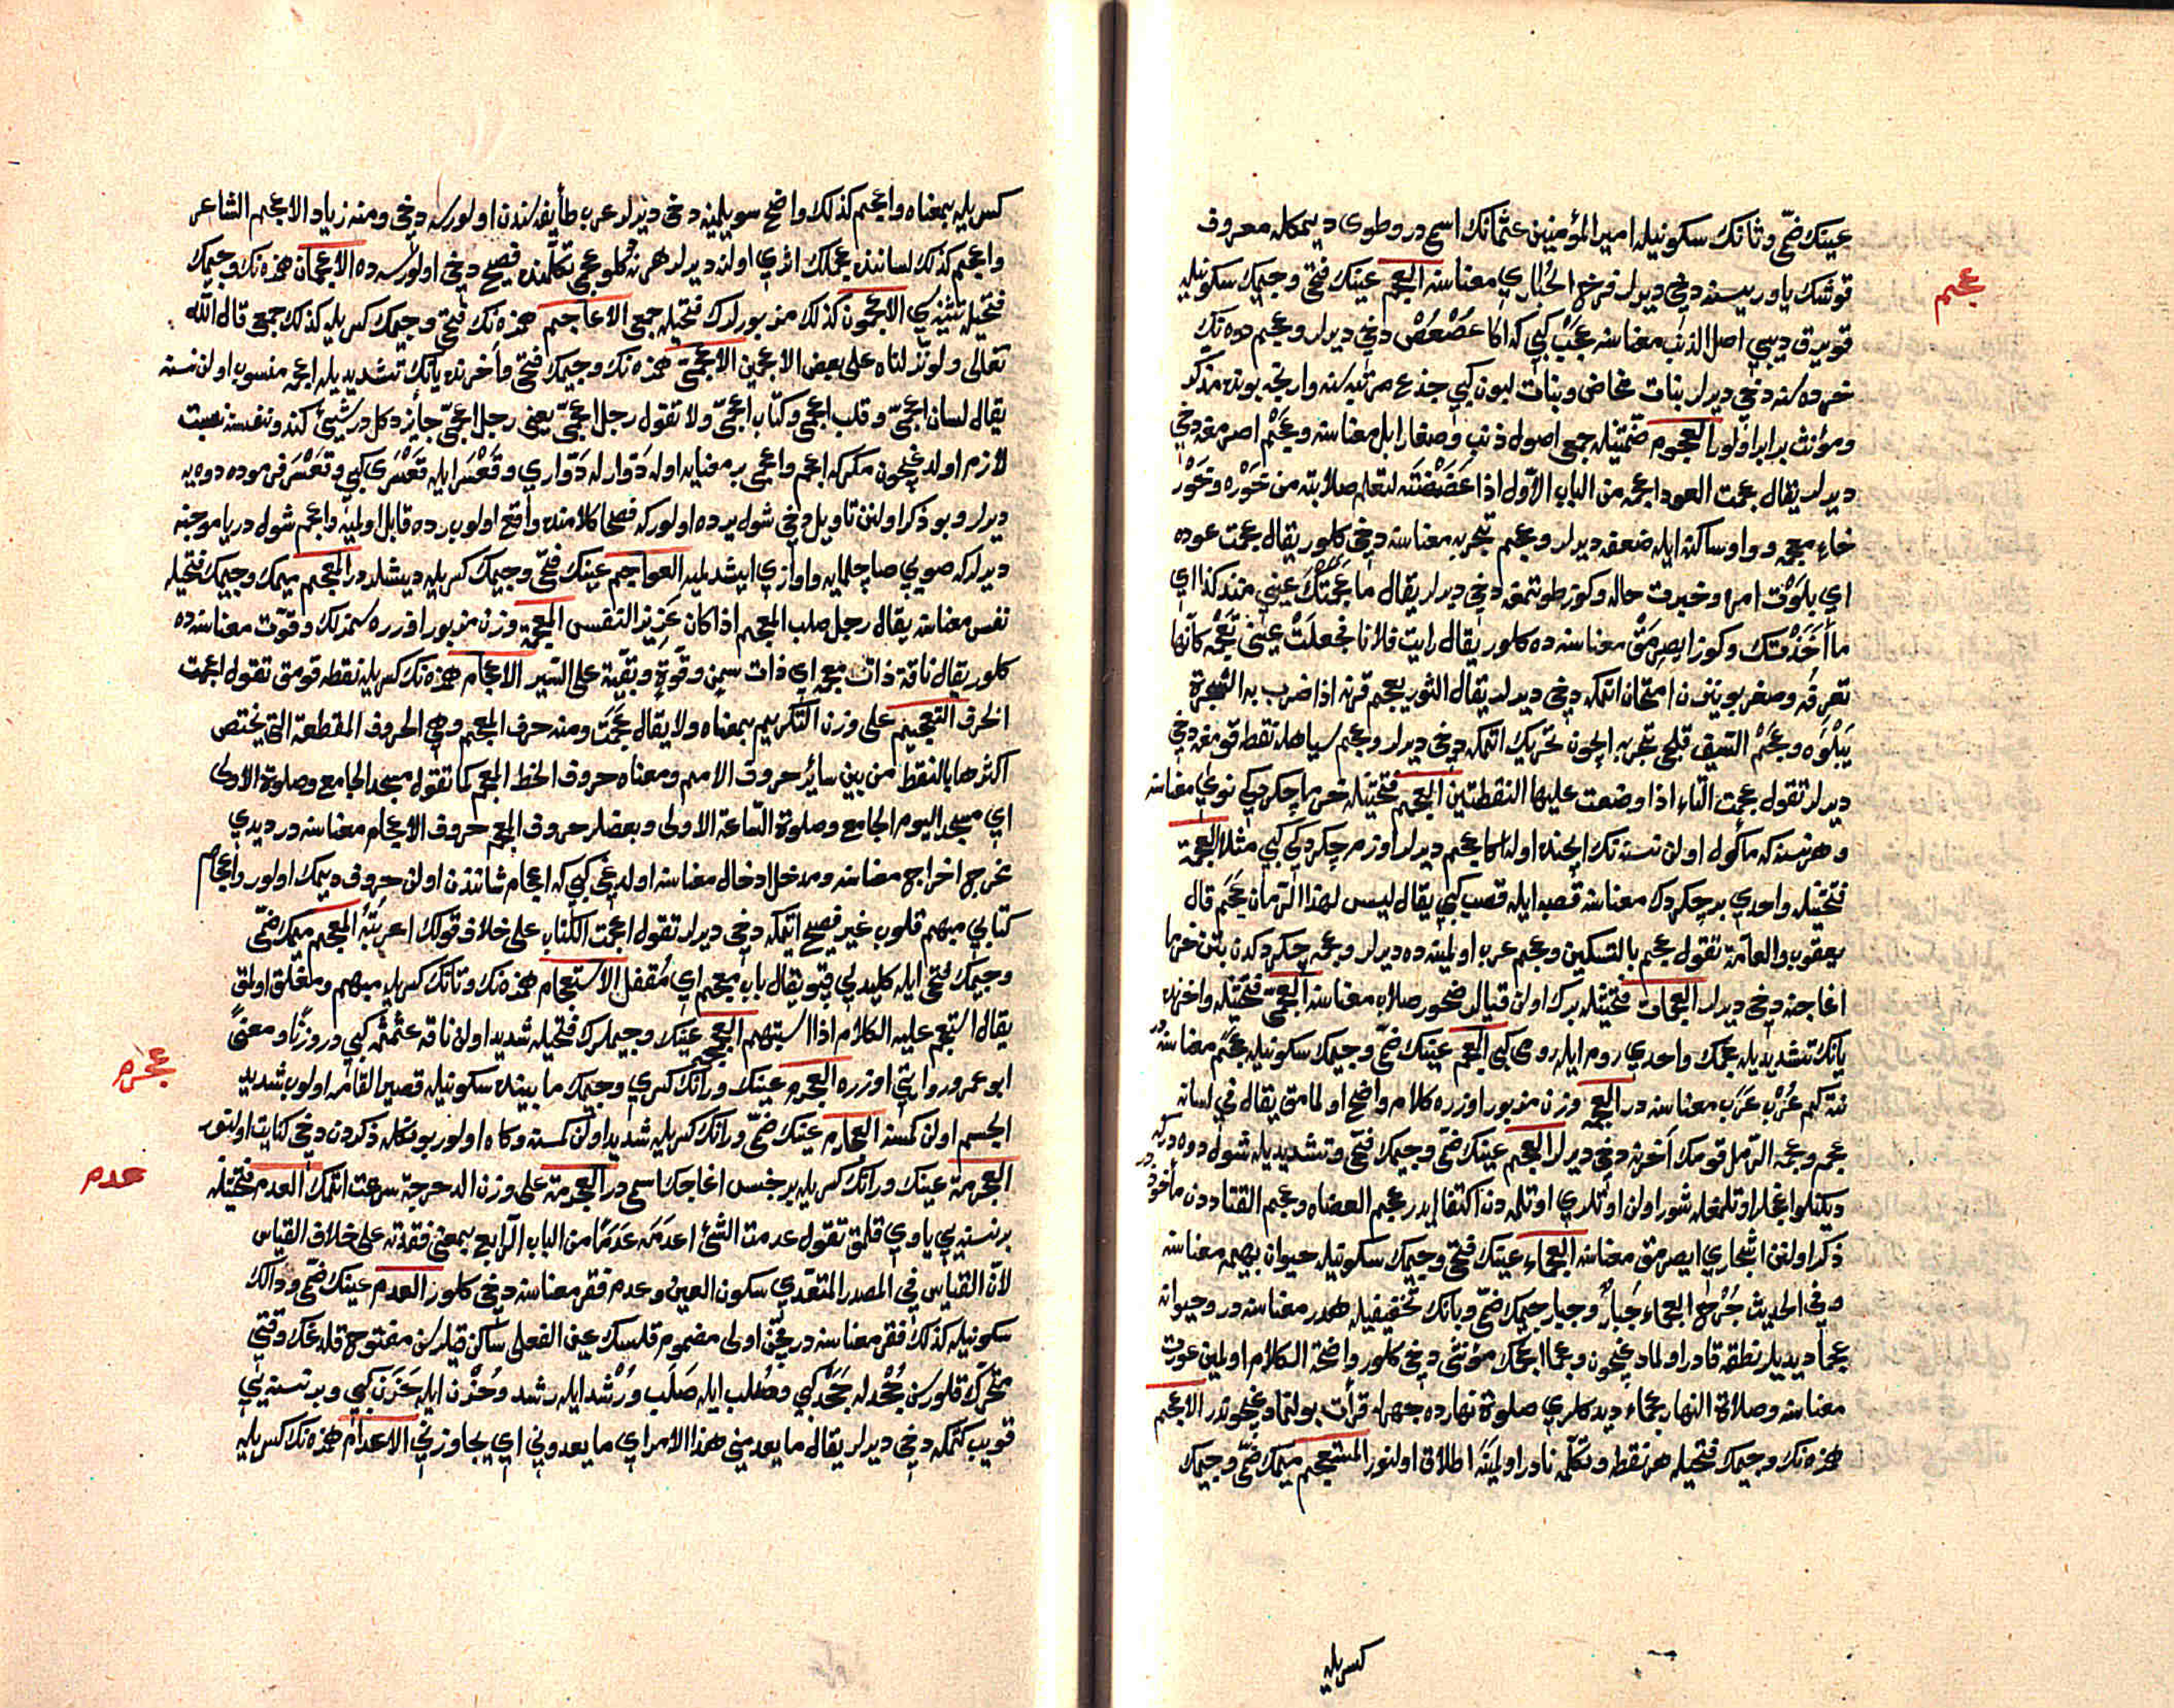 عينك ضمّى وثانك سكونيله امير المؤمنين عثمانك اسمى در وطوى ديمكله معروف
عجم
قوشك ياوريسنه دخى ديرلر فرخ الحُبارى معناسنه العجم عينك فتحى وجيمك سكونيله
قويرق ديبى اصل الذنب معناسنه عجب كبى كه اكا عُصْعُصْ دخى ديرلر وعجم دوه نك
خرده سنه دخى ديرلر بنات مخاض وبنات لبون كبى جذع مرتبه سنه وارنجه بونده مذكر
ومؤنث برابر اولور العجوم ضمّتيله جمعى اصول ذنب وصغار ابل معناسنه وعجم اصرمغه دخى
ديرلر يقال عجمت العود اعجمه من الباب الاول اذا عضضته لتعلم صلابته من خَوَره وخَوَر
خاء معجمه وواو ساكنه ايله ضعفه ديرلر وعجم تجربه معناسنه دخى كلور يقال عجمت عوده
اى بلوت امره وخبرت حاله وكوز طوتمغه دخى ديرلر يقال ما عجمتك عينى منذ كذا اى
ما أخذتك وكوز ايصرمق معناسنه ده كلور يقال رايت فلانا فجعلت عينى تعجمه كانّها
تعرفه وصغر بوينزن امتحان اتمكه دخى ديرلر يقال الثور يعجم قرنه اذا ضرب به الشجرة
يَبْلُوَه وعَجْم السيف قلجى تجربه ايچون تحريك اتمكه دخى ديرلر وعجم سياهله نقطه قومغه دخى
ديرلر تقول عجمت التاء اذا وضعت عليها النقطتين العجم فتحتيله خرما چكردكى نوى معناسنه
وهر نسنه كه مأكول اولن نسنه نك ايچنده اوله اكا عجم ديرلر اوزم چكردكى كبى مثلا العجمة
فتحتيله واحدى بر چكردك معناسنه قصبه ايله قصب كبى يقال ليس لهذا الرمان عَجَم قال
يعقوب والعامّة تقول عجم بالتسكين وعجم عرب اولمينه ده ديرلر وعجمه چكردكدن بتن خرما
اغاجنه دخى ديرلر العجمات فتحتيله برك اولن قيالر ضخور صلاب معناسنه العجمىّ فتحتيله واخرنده
يانك تشديديله عجمك واحدى روم ايله رومى كبى العجم عينك ضمّى وجيمك سكونيله عَجَم معناسنه در
نته كم عُرْب عَرَب معناسنه در العجمه وزن مزبور اوزره كلام واضح اولمامق يقال فى لسانه
عجمه وعجمة الرمل قومك آخرنه دخى ديرلر العجّم عينك ضمّى وجيمك فتحى وتشديديله شول دوه در كه
ديكنلو اغاجلر اوتلمغله شور اولن اوتلرى اوتلمه دن اكتفا ايدر عجم العضاه وعجم القتاد دن مأخوذ در
ذكر اولنن اشجارى ايصرمق معناسنه العجماء عينك فتحى وجيمك سكونيله حيوان بهيمه معناسنه
وفى الحديث جُرْح العجماء جُبارٌ وجبار جيمك ضمّى وبانك تخفيفيله هدر معناسنه در وحيوانه
عجما ديديلر نطقه قادر اولمادغيچون وعجما اعجمك مؤنثى دخى كلور واضحة الكلام اولمين عورت
معناسنه وصلاة النهار عجماء ديدكلرى صلوة نهارده جهرله قرأت بولنمادغيچوندر الاعجم
همزه نك وجيمك فتحيله هر نقطه وتكلمه نادر اولمينه اطلاق اولنور المستعجم ميمك ضمّى وجيمك
كسريله
كسريله بمعناه واعجم كذلك واضح سويلمينه دخى ديرلر عرب طائفه سندن اولورسه دخى ومنه زياد الاعجم الشاعر
واعجم كذلك لساننده عجملك اثرى اولنه ديرلر هر نه كلو عجمى تكلّمنده فصيح دخى اولورسه ده الاعجمان همزه نك وجيمك
فتحيله تثنيه سى الاعجمون كذلك مزبورلرك فتحيله جمعى الاعاجم همزه نك فتحى وجيمك كسريله كذلك جمعى قال الله
تعالى ولو نزلناه على بعض الاعجمين الاعجمىّ همزه نك وجيمك فتحى وآخرنده يانك تشديديله اعجمه منسوب اولن نسنه
يقال لسان اعجمىّ وقلب اعجمى وكتاب اعجمىّ ولا تقول رجل اعجمىّ يعنى رجل اعجمىّ جايز دكلدر شيئ كندو نفسنه نسبت
لازم اولدغيچون مكر كه اعجم واعجمى بر معنايه اوله دَوّار له دَوّارى وقَعْسَر ايله قَعْسَرى كبى وقَعْسَر فرموده دوه يه
ديرلر وبو ذكر اولنن تاويل دخى شول يرده اولور كه فصحا كلامنده واقع اولوب رده قابل اولميه واعجم شول دريا موجنه
ديرلر كه صويى صاچلميه واوازى ايشدلميه العواجم عينك فتحى وجيمك كسريله ديشلدر المعجم ميمك وجيمك فتحيله
نفس معناسنه يقال رجل صلب المعجم اذا كان عزيز النفس المعجمة وزن مزبور اوزره سمزلك وقوّت معناسنه ده
كلور يقال ناقة ذات معجمه اى ذات سِمن وقوّةٍ وبقيّة على السّير الاعجام همزه نك كسريله نقطه قومق تقول اعجمت
الحرف التعجيم على وزن التكريم بمعناه ولا يقال عجمت ومنه حرف المعجم وهى الحروف المقطعة التى يختص
اكثرها بالنقط من بين سائر حروف الامم ومعناه حروف الخط المعجم كما تقول مسجد الجامع وصلوة الاولى
اى مسجد اليوم الجامع وصلوة الساعة الاولى وبعضلر حروف المعجم حروف الاعجام معناسنه در ديدى
مخرج اخراج معناسنه ومدخل ادخال معناسنه اولدغى كبى كه اعجام شانندن اولن حروف ديمك اولور واعجام
كتابى مبهم قلوب غير فصيح اتمكه دخى ديرلر تقول اعجمت الكتاب على خلاف قولك اعربته المعجم ميمك ضمّى
وجيمك فتحى ايله كليدلى قپو يقال باب معجم اى مُقفل الاستعجام همزه نك وتانك كسريله مبهم ومغلق اولمق
يقال استعجم عليه الكلام اذا استبهم العجمجم عينك وجيملرك فتحيله شديد اولن ناقه عثمثم كبى در وزنًا ومعنىً
عجرم
ابو عمرو روايتى اوزره العجرم عينك ورانك كسرى وجيمك ما بيننده سكونيله قصير القامه اولوب شديد
الجسم اولن كمسنه العجارم عينك ضمّى ورانك كسريله شديد اولن كمسنه وكاه اولور بونكله ذكردن دخى كنايت اولنور
عدم
العجرمة عينك ورانك كسريله بر جنس اغاجك اسمى در العجرمة على وزن الدحرجة سرعت اتمك العدم فتحتيله
بر نسنه يى ياوى قلمق تقول عدمت الشئ اعدمه عَدَمًا من الباب الرابع بمعنى فقدته على خلاف القياس
لانّ القياس فى المصدر المتعدّى سكون العين وعدم فقر معناسنه دخى كلور العدم عينك ضمّى ودالك
سكونيله كذلك فقر معناسنه در مخفّن اولى مضموم قلسك عين الفعلى ساكن قيلرسن مفتوح قلدغك وقتى
متحرك قلورسن جُحْد له جَحَد كبى وصُلب ايله صَلَب ورُشْد ايله رشد وحُزْن ايله حَزَن كبى وبر نسنه يى
قويب كتمكه دخى ديرلر يقال ما يعدمنى هذا الامر اى ما يعدونى اى يجاوزنى الاعدام همزه نك كسريله